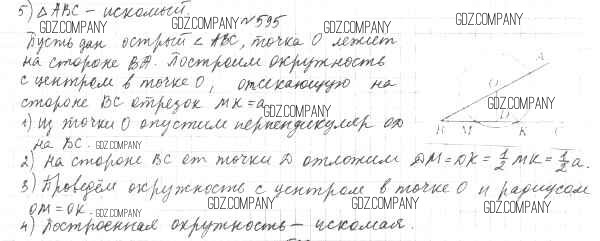 5) △ABC – искомый
N 595
Пусть дан острый ∠ ABC, точка O лежит
на стороне BA. Построим окружность
с центром в точке O, отсекающую на
стороне BC отрезок MK = a.
1) Из точки O опустим перпендикуляр OD
на BC.
2) На стороне BC от точки D отложим DM = DK = 1/2 MK = 1/2 a.
3) Проведём окружность с центром в точке O и радиусом
OM = OK.
4) Построенная окружность – искомая.
A
O
B M K C
GDZ.COMPANY
GDZ.COMPANY
GDZ.COMPANY
GDZ.COMPANY
GDZ.COMPANY
GDZ.COMPANY
GDZ.COMPANY
GDZ.COMPANY
GDZ.COMPANY
GDZ.COMPANY
GDZ.COMPANY
GDZ.COMPANY